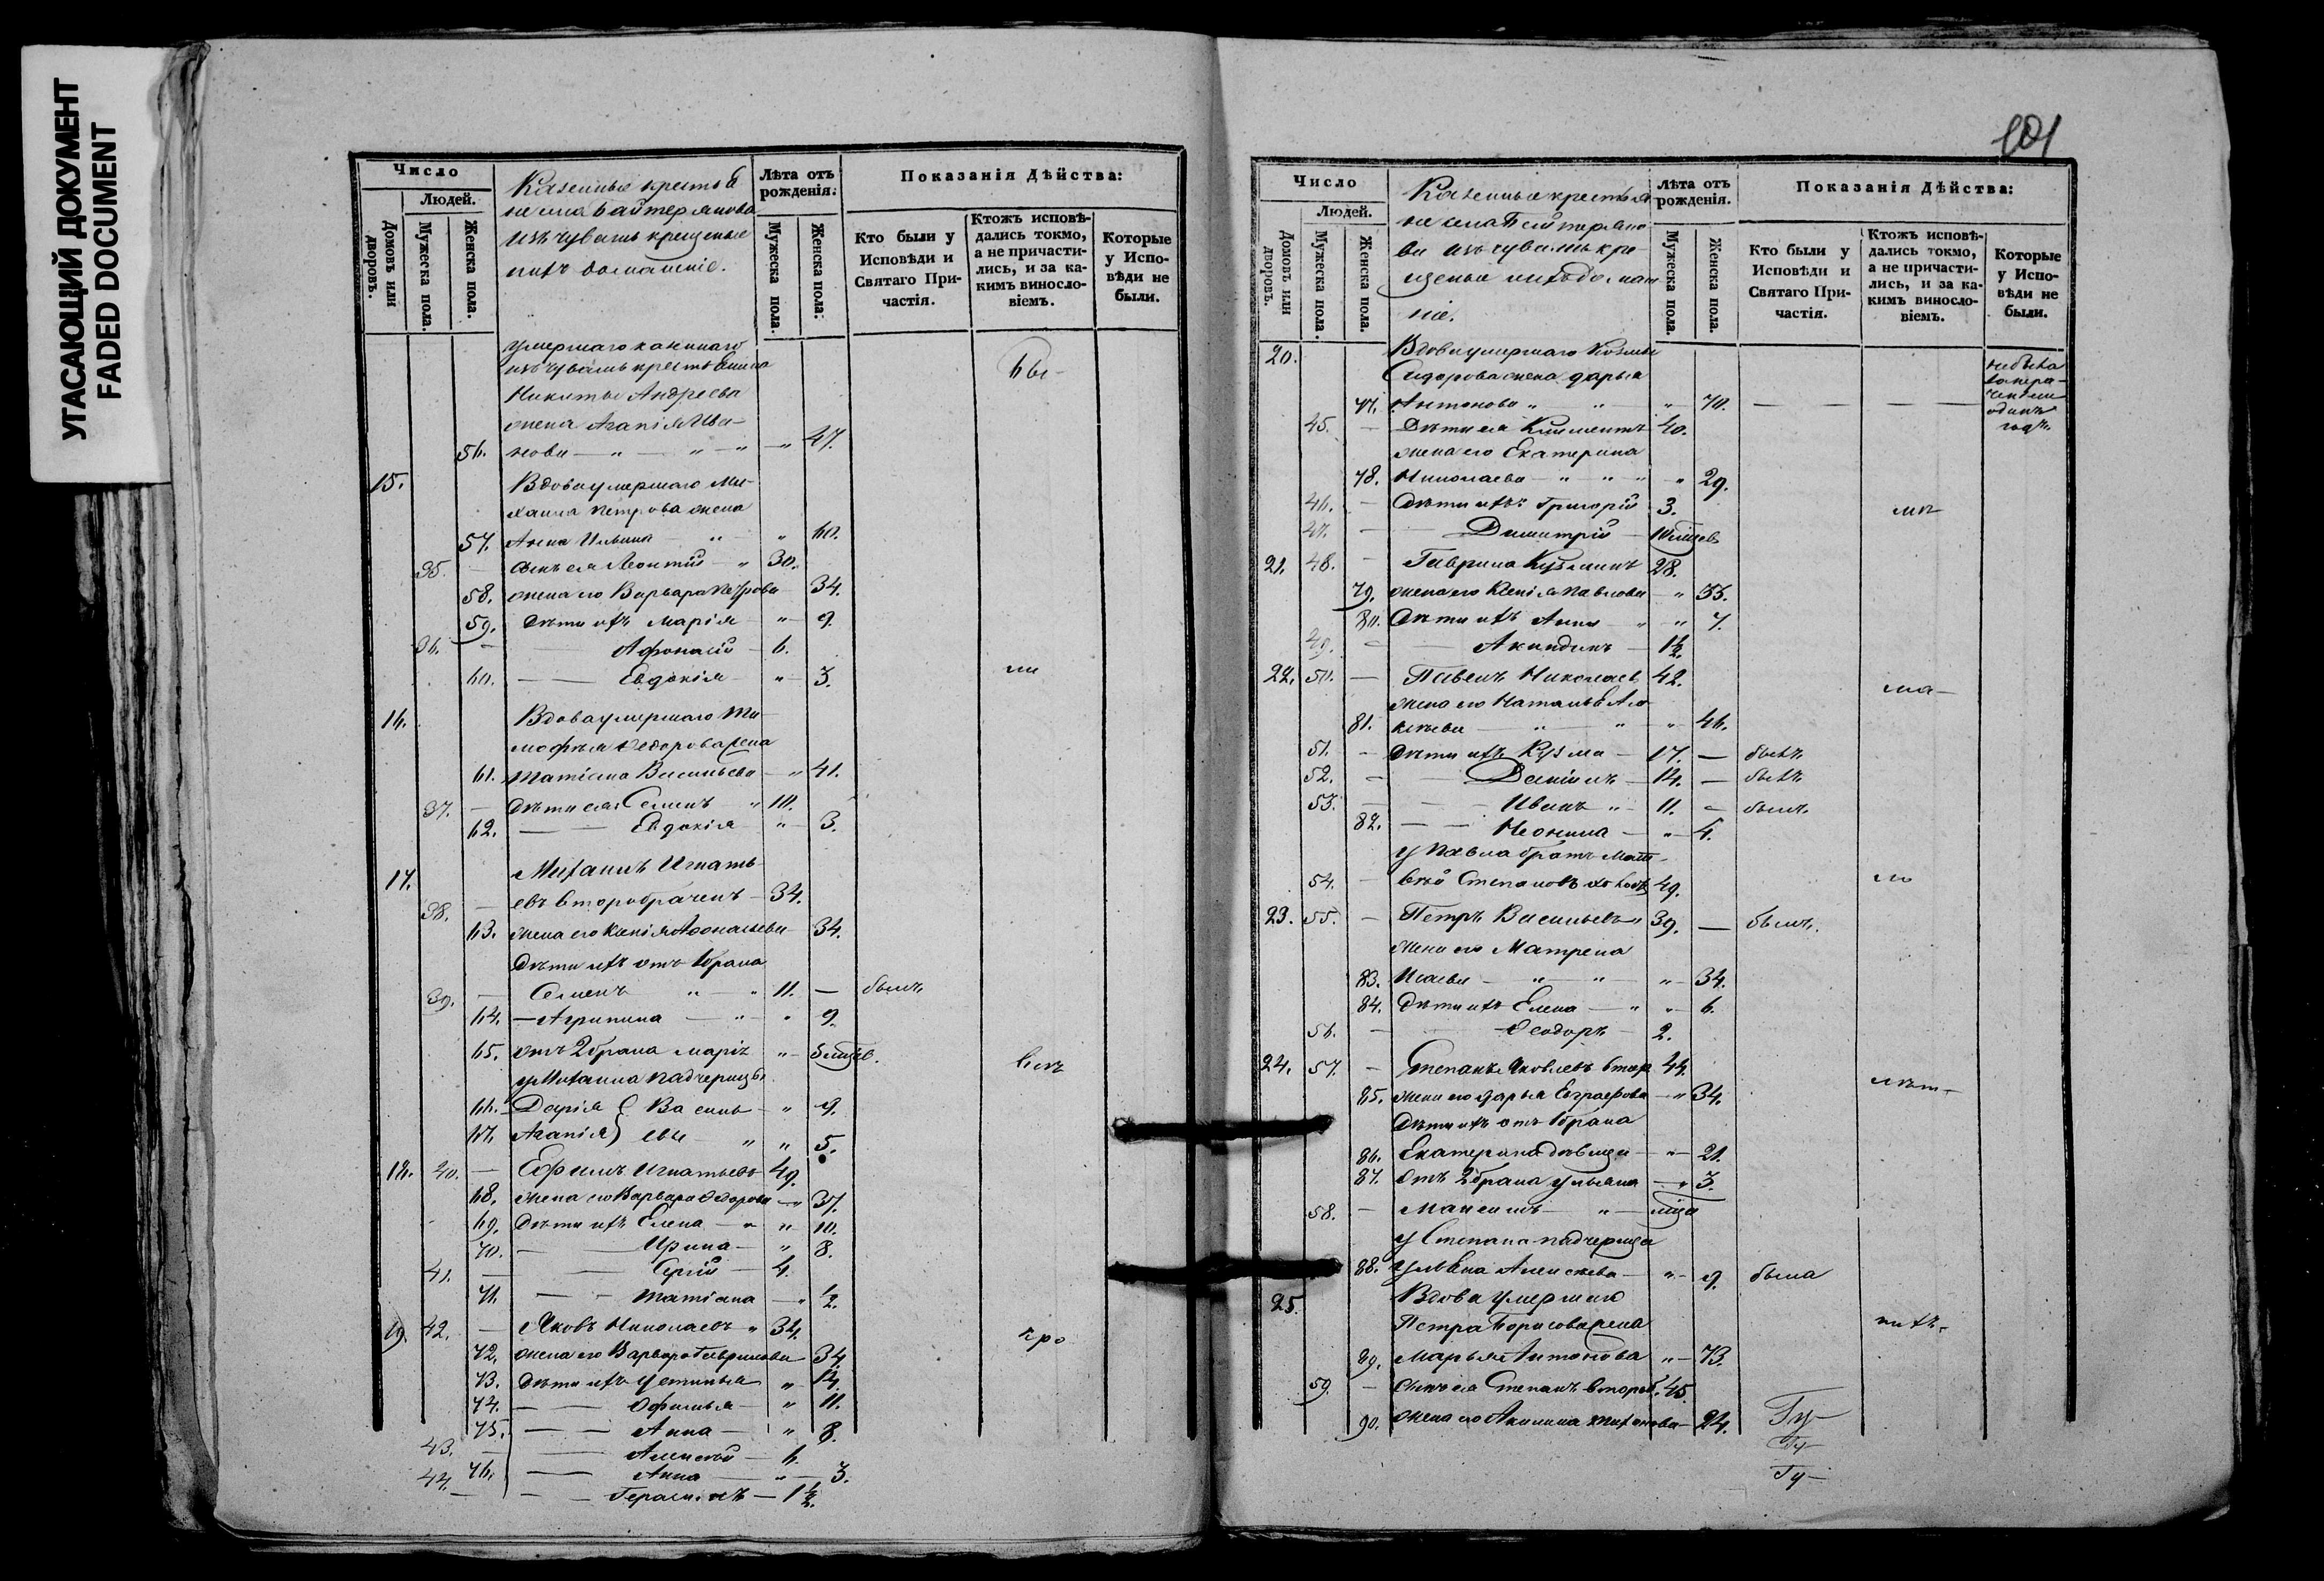 УГАСАЮЩИЙ ДОКУМЕНТ
FADED DOCUMENT
Число
Людей.
Домовъ или дворовъ.
Мужеска пола.
Женска пола.
Казенные крестья
не села
изъ чувашъ крещеные
ихъ домашніе.
Лѣта отъ рожденія:
Мужеска пола.
Женска пола:
Показанія Дѣйства:
Кто были у Исповѣди и Святаго Причастія.
Ктожъ исповѣдались токмо, а не причастились, и за какимъ винословіемъ.
Которые у Исповѣди не были.
умершаго
изъ чувашъ крестьянина
Никиты Андреева
жена Агапія Ива-
56. нова — „ — „ — „ — „ 47.
15. Вдова умершаго Ми-
хаила Петрова жена
57. Анна Ильина — „ — „ 60.
35. — сынъ ея Леонтій — „ 30.
58. жена его Варвара Петрова 34.
59. дѣти ихъ Марія — „ — 9.
36. — Афонасій — 6.
60. — — Евдокія — „ — 3.
16. Вдова умершаго Ти-
мофѣя Ѳедорова жена
61. Татіана Васильева — „ 41.
37. — дѣти ея: Семенъ — „ 10.
62. — — Евдокія — „ — 3.
17. Михаилъ Игнать-
38. — евъ второбраченъ — 34.
63. жена его Ксенія Афонасьева 34.
дѣти ихъ отъ 1 брака
39. — Семенъ „ — „ 11. — былъ
64. — Агрипина — „ — „ 9.
65. отъ 2 брака Марія „ — 5 мѣсяц.
у Михаила падчерицы
66. Дарія } Василь — „ — 9.
67. Агапія } евы „ „ 5.
18. 40. — Ефимъ Игнатьевъ 49.
68. жена его Варвара Ѳедорова — „ 37.
69. дѣти ихъ Елена — „ „ 10.
70. — — Ирина — „ 8.
41. — — Сергій — 4.
71. — — Татіана — „ 1/2.
19. 42. — Яковъ Николаевъ „ 34.
72. жена его Варвара Гаврилова 34.
73. дѣти ихъ Устинья „ 14.
74. — — Офимья — „ 11.
75. — — Анна — „ 8.
43. — — Алексѣй — 6.
76. — — Анна — „ — 3.
44. — — Герасимъ — 1 1/2.
101
Число
Людей.
Домовъ или дворовъ.
Мужеска пола.
Женска пола.
Казенные крестья
не села
ва изъ чувашъ кре
щеные ихъ домаш
ніе.
Лѣта отъ рожденія.
Мужеска пола.
Женска пола.
Показанія Дѣйства:
Кто были у Исповѣди и Святаго Причастія.
Ктожъ исповѣдались токмо, а не причастились, и за какимъ винословіемъ.
Которые у Исповѣди не были.
20. Вдова умершаго Козмы
Сидорова жена Дарья
77. Антонова „ „ „ — 70. — — — —
не была
одинъ
годъ.
45. — дѣти ея Климентъ 40.
жена его Екатерина
78. Николаева — „ „ „ „ 29.
46. — дѣти ихъ Григорій 3.
47. — Димитрій —
21. 48. — Гаврила Кузминъ 28.
79. жена его Ксенія Павлова „ 33.
80. дѣти ихъ Анна „ „ 7.
49. — Акиндинъ — 1 1/2.
22. 50. — Павелъ Николаевъ 42.
жена его Наталья Але
81. ксѣева „ „ „ 46.
51. — дѣти ихъ Кузма — 17. — былъ
52. — Даніилъ — 14. — былъ
53. — — Иванъ „ 11. — былъ
82. — — Неонила — „ 4.
у Павла братъ Мат-
54. — вѣй Степановъ холостъ 49.
23. 55. — Петръ Васильевъ „ 39. — былъ.
жена его Матрена
83. Исаева — „ „ „ — 34.
84. дѣти ихъ Елена — „ „ 6.
56. — Ѳеодоръ — 2.
24. 57. — Степанъ Яковлевъ втор 44.
85. жена его Дарья Евграфова — „ 34.
дѣти ихъ отъ 1 брака
86. Екатерина дѣвица — „ — 21.
87. отъ 2 брака Ульяна — „ 3.
58. — Максимъ — „ —
у Степана падчерица
88. Ульяна Алексѣева — „ — 9. была
25. Вдова умершаго
Петра Борисова жена
89. Марья Антонова „ — 73.
59. — сынъ ея Степанъ второб. 45.
90. жена его Акилина Тиханова — 24.